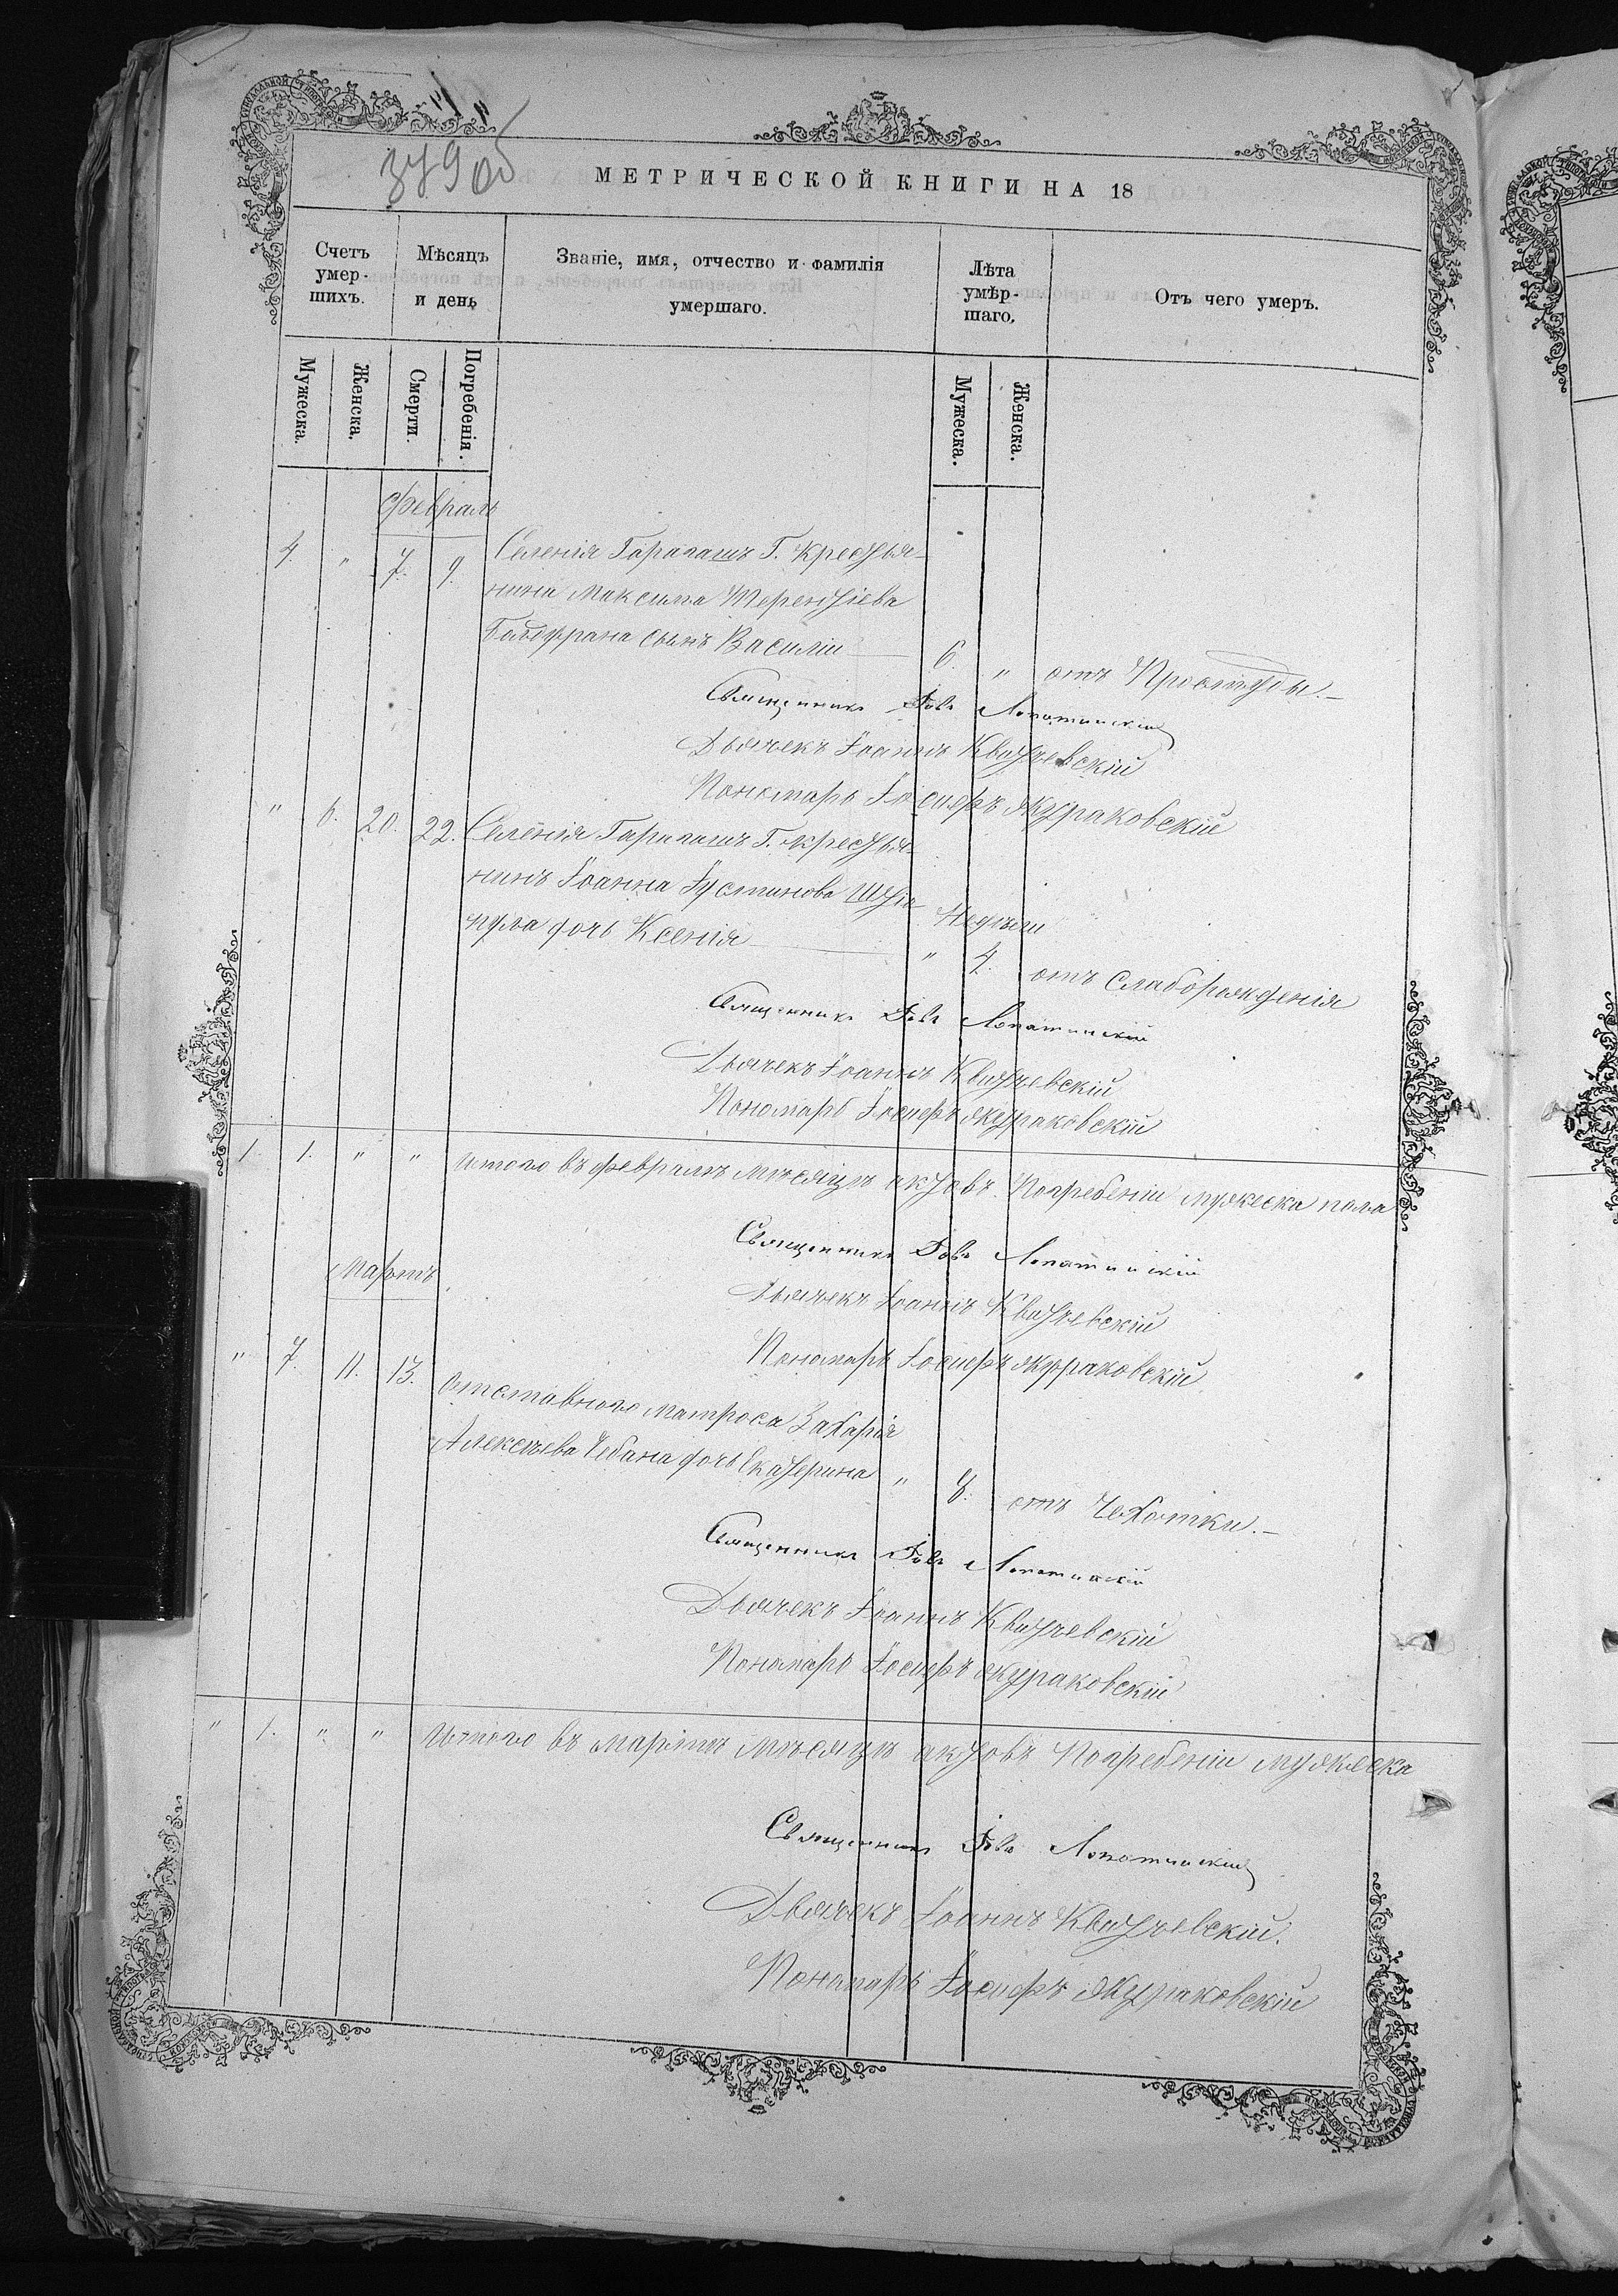 379 об
МЕТРИЧЕСКОЙ КНИГИ НА 18
Счетъ умер-шихъ.
Мѣсяцъ и день
Званіе, имя, отчество и фамилія умершаго.
Лѣта умѣр-шаго.
Отъ чего умеръ.
Мужеска.
Женска.
Смерти.
Погребенія.
Мужеска.
Женска.
Февраль
4. " 7. 9. Селенія Гарапашъ Г. Крестья-
нина Максима Терентіева
сынъ Василій 6. " отъ Простуды.
Священникъ Іовъ Лопатинскій
Дьячекъ Іоаннъ Квитчевскій
Пономарь Іосифъ Жураковскій
" 6. 20. 22. Селенія Гарапашъ Г. Крестья-
нинъ Іоанна Іустинова
дочь Ксенія Недѣли
" 4. отъ Слаборожденія
Священникъ Іовъ Лопатинскій
Дьячекъ Іоаннъ Квитчевскій
Пономарь Іосифъ Жураковскій
1. 1. " " Итого въ февралѣ мѣсяцѣ актовъ Погребеніи мужеска пола
Священникъ Іовъ Лопатинскій
Мартъ
Дьячекъ Іоаннъ Квитчевскій
Пономарь Іосифъ Жураковскій
" 7. 11. 13. Отставного матроса Захарія
Алексѣева Чебана дочь Екатерина " 8. отъ Чахотки.
Священникъ Іовъ Лопатинскій
Дьячекъ Іоаннъ Квитчевскій
Пономарь Іосифъ Жураковскій
" 1. " " Итого въ мартѣ мѣсяцѣ актовъ Погребеніи мужеска
Священникъ Іовъ Лопатинскій
Дьячекъ Іоаннъ Квитчевскій.
Пономарь Іосифъ Жураковскій